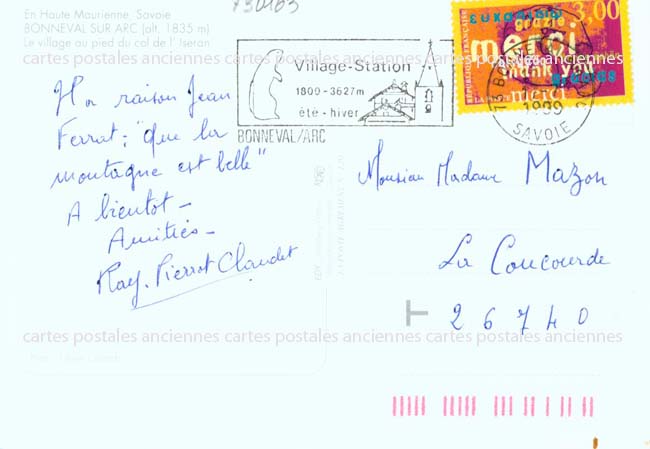 730103
En Haute Maurienne Savoie
BONNEVAL SUR ARC (alt. 1835 m)
Le village au pied du col de l'Iseran
cartes postales anciennes cartes postales anciennes cartes postales anciennes
Village-Station
1800-3627m
été-hiver
BONNEVAL/ARC
3,00
RÉPUBLIQUE FRANÇAISE
grazie
merci
thank you
gracias
merci
1999
SAVOIE
Il a raison Jean
Ferrat: "que la
montagne est belle"
A bientot -
Amitiés -
Ray. Pierrot Claudet
Monsieur Madame Mazon
La Coucourde
26740
cartes postales anciennes cartes postales anciennes cartes postales anciennes